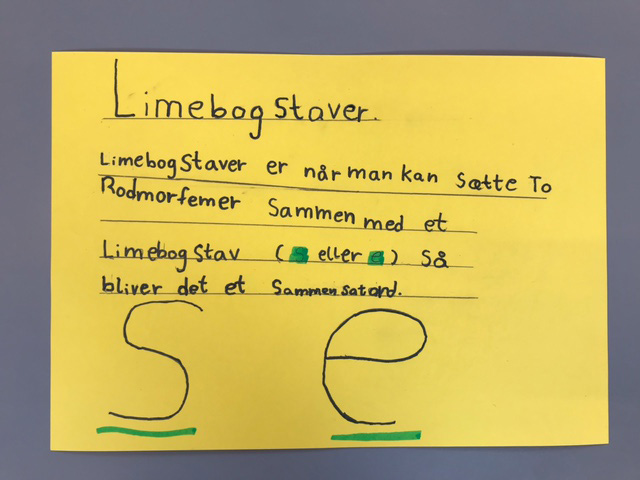 Limebogstaver.
Limebogstaver er når man kan sætte To
Rodmorfemer sammen med et
Limebogstav (s eller e) så
bliver det et sammensatord.
s e